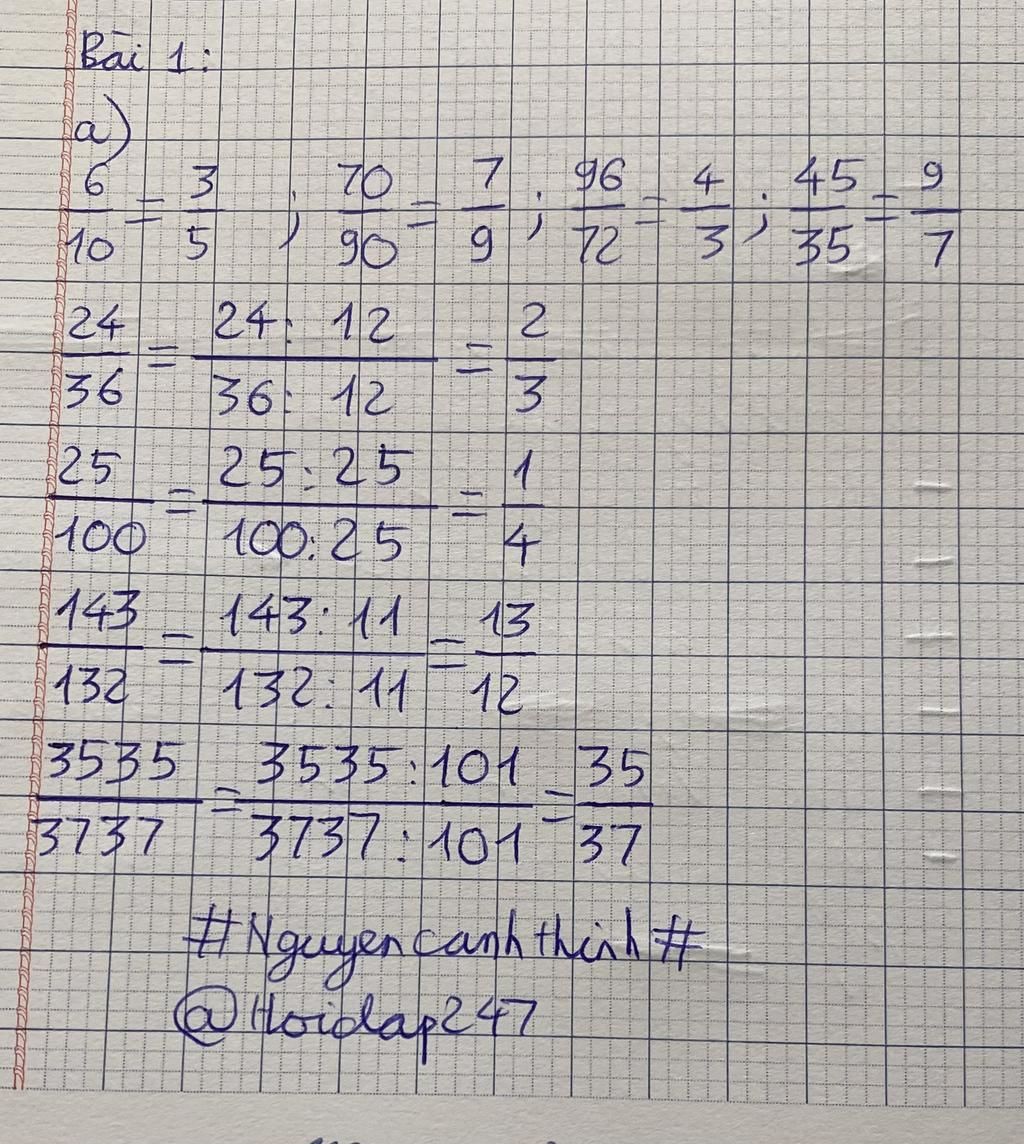 Bài 1:
a)
6/10 = 3/5 ; 70/90 = 7/9 ; 96/72 = 4/3 ; 45/35 = 9/7
24/36 = 24: 12/36: 12 = 2/3
25/100 = 25:25/100:25 = 1/4
143/132 = 143: 11/132: 11 = 13/12
3535/3737 = 3535:101/3737:101 = 35/37
#Nguyencanhthinh#
@Hoidap247